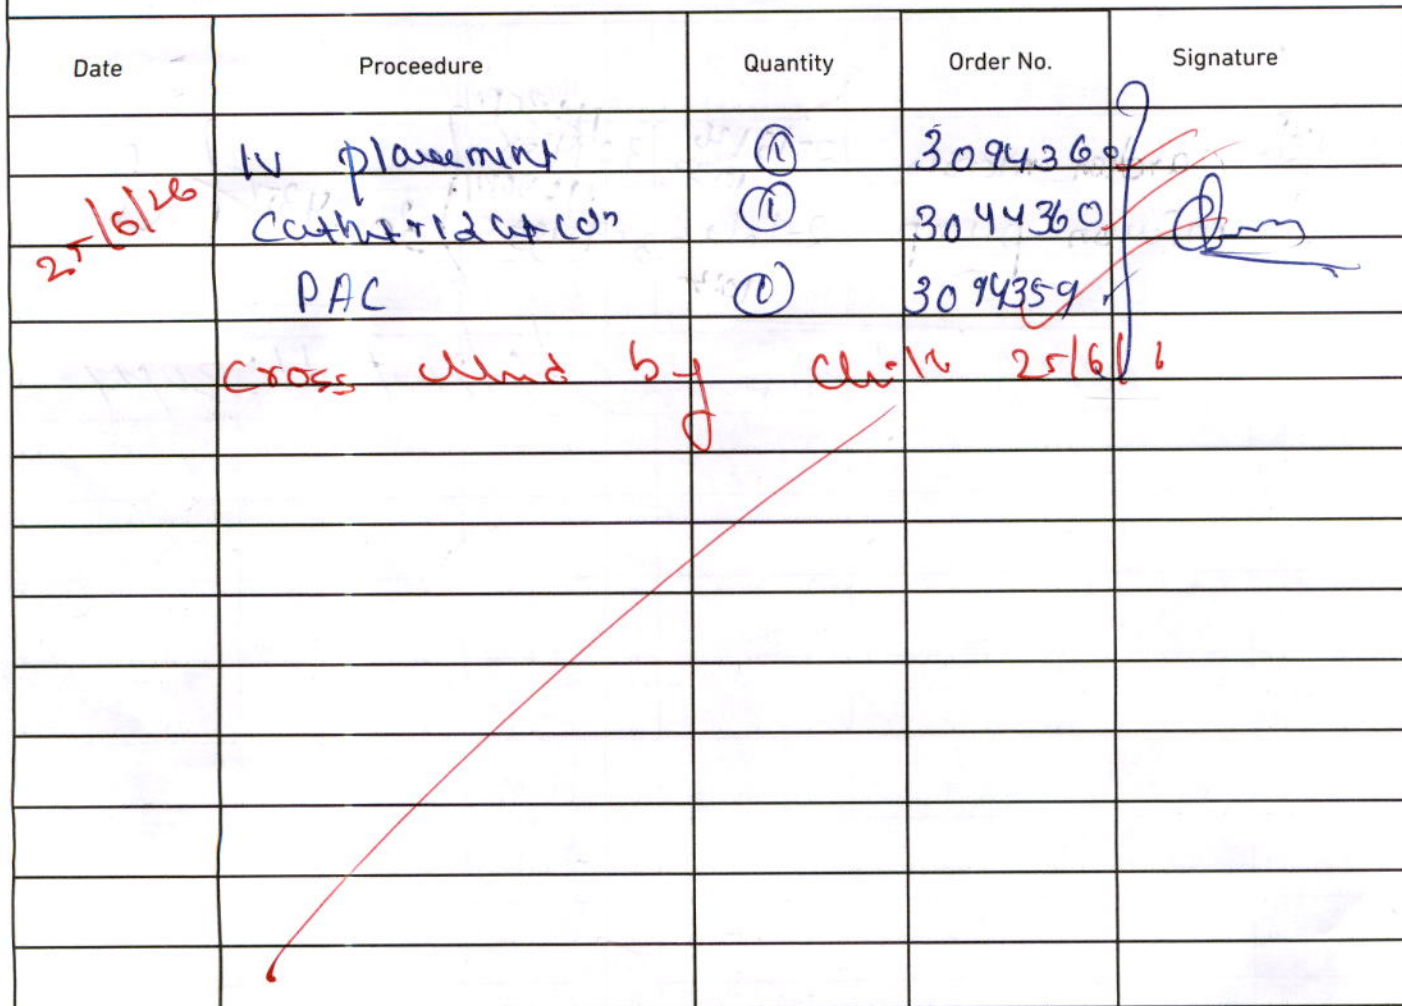 Date Proceedure Quantity Order No. Signature
IV placement 1 3094360
25/6/26
Catheridation 1 3044360
PAC 1 3094359
Cross by 25/6/